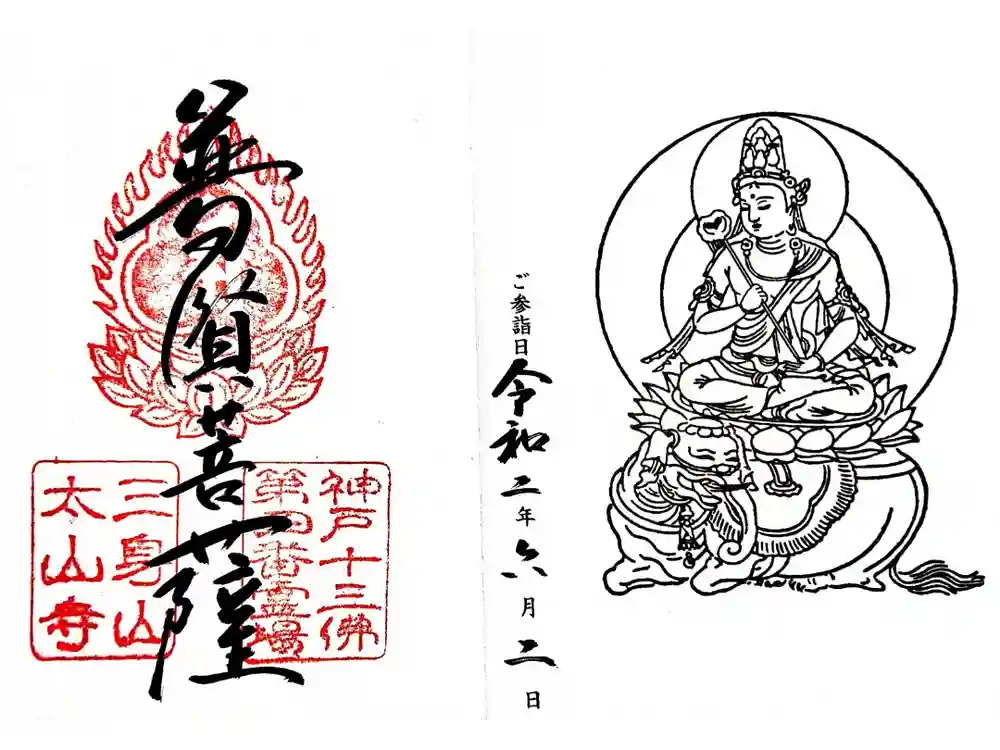 ご参詣日 令和二年六月二日
普賢菩薩
神戸十三佛
第四番霊場
三身山
太山寺